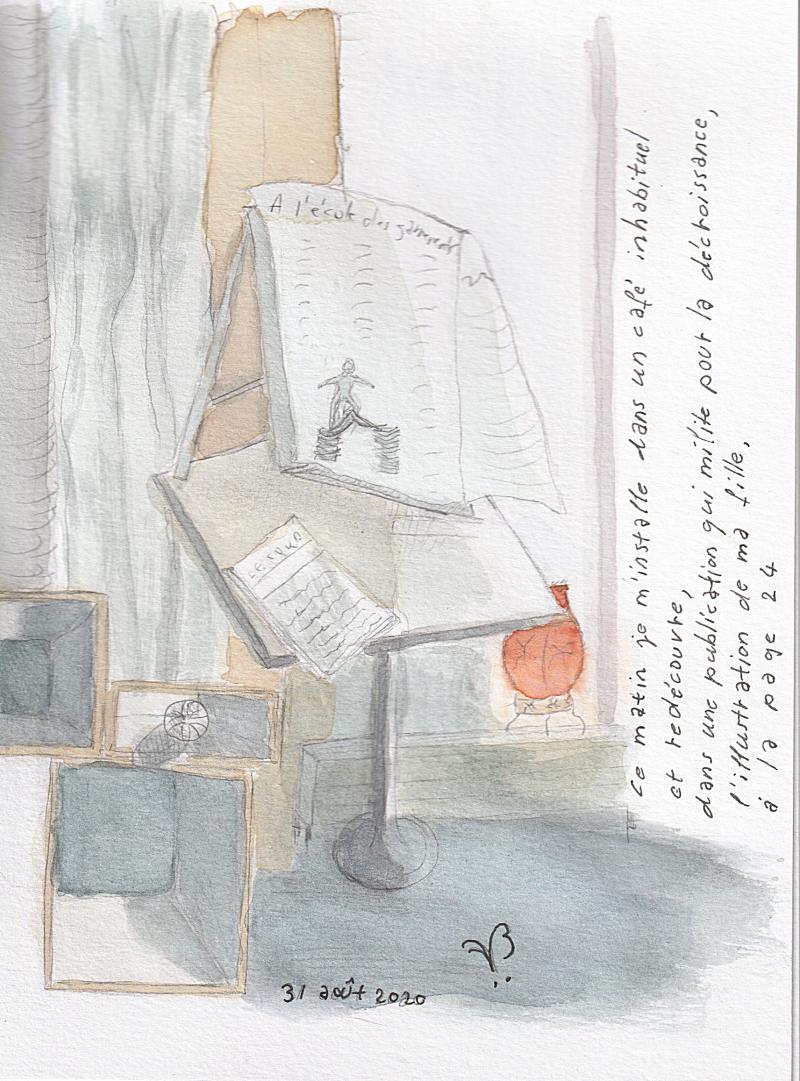 A l'école des
LE SOUP
Ce matin je m'installe dans un café inhabituel
et redécouvre,
dans une publication qui milite pour la décroissance,
l'illustration de ma fille,
à la page 24
31 août 2020